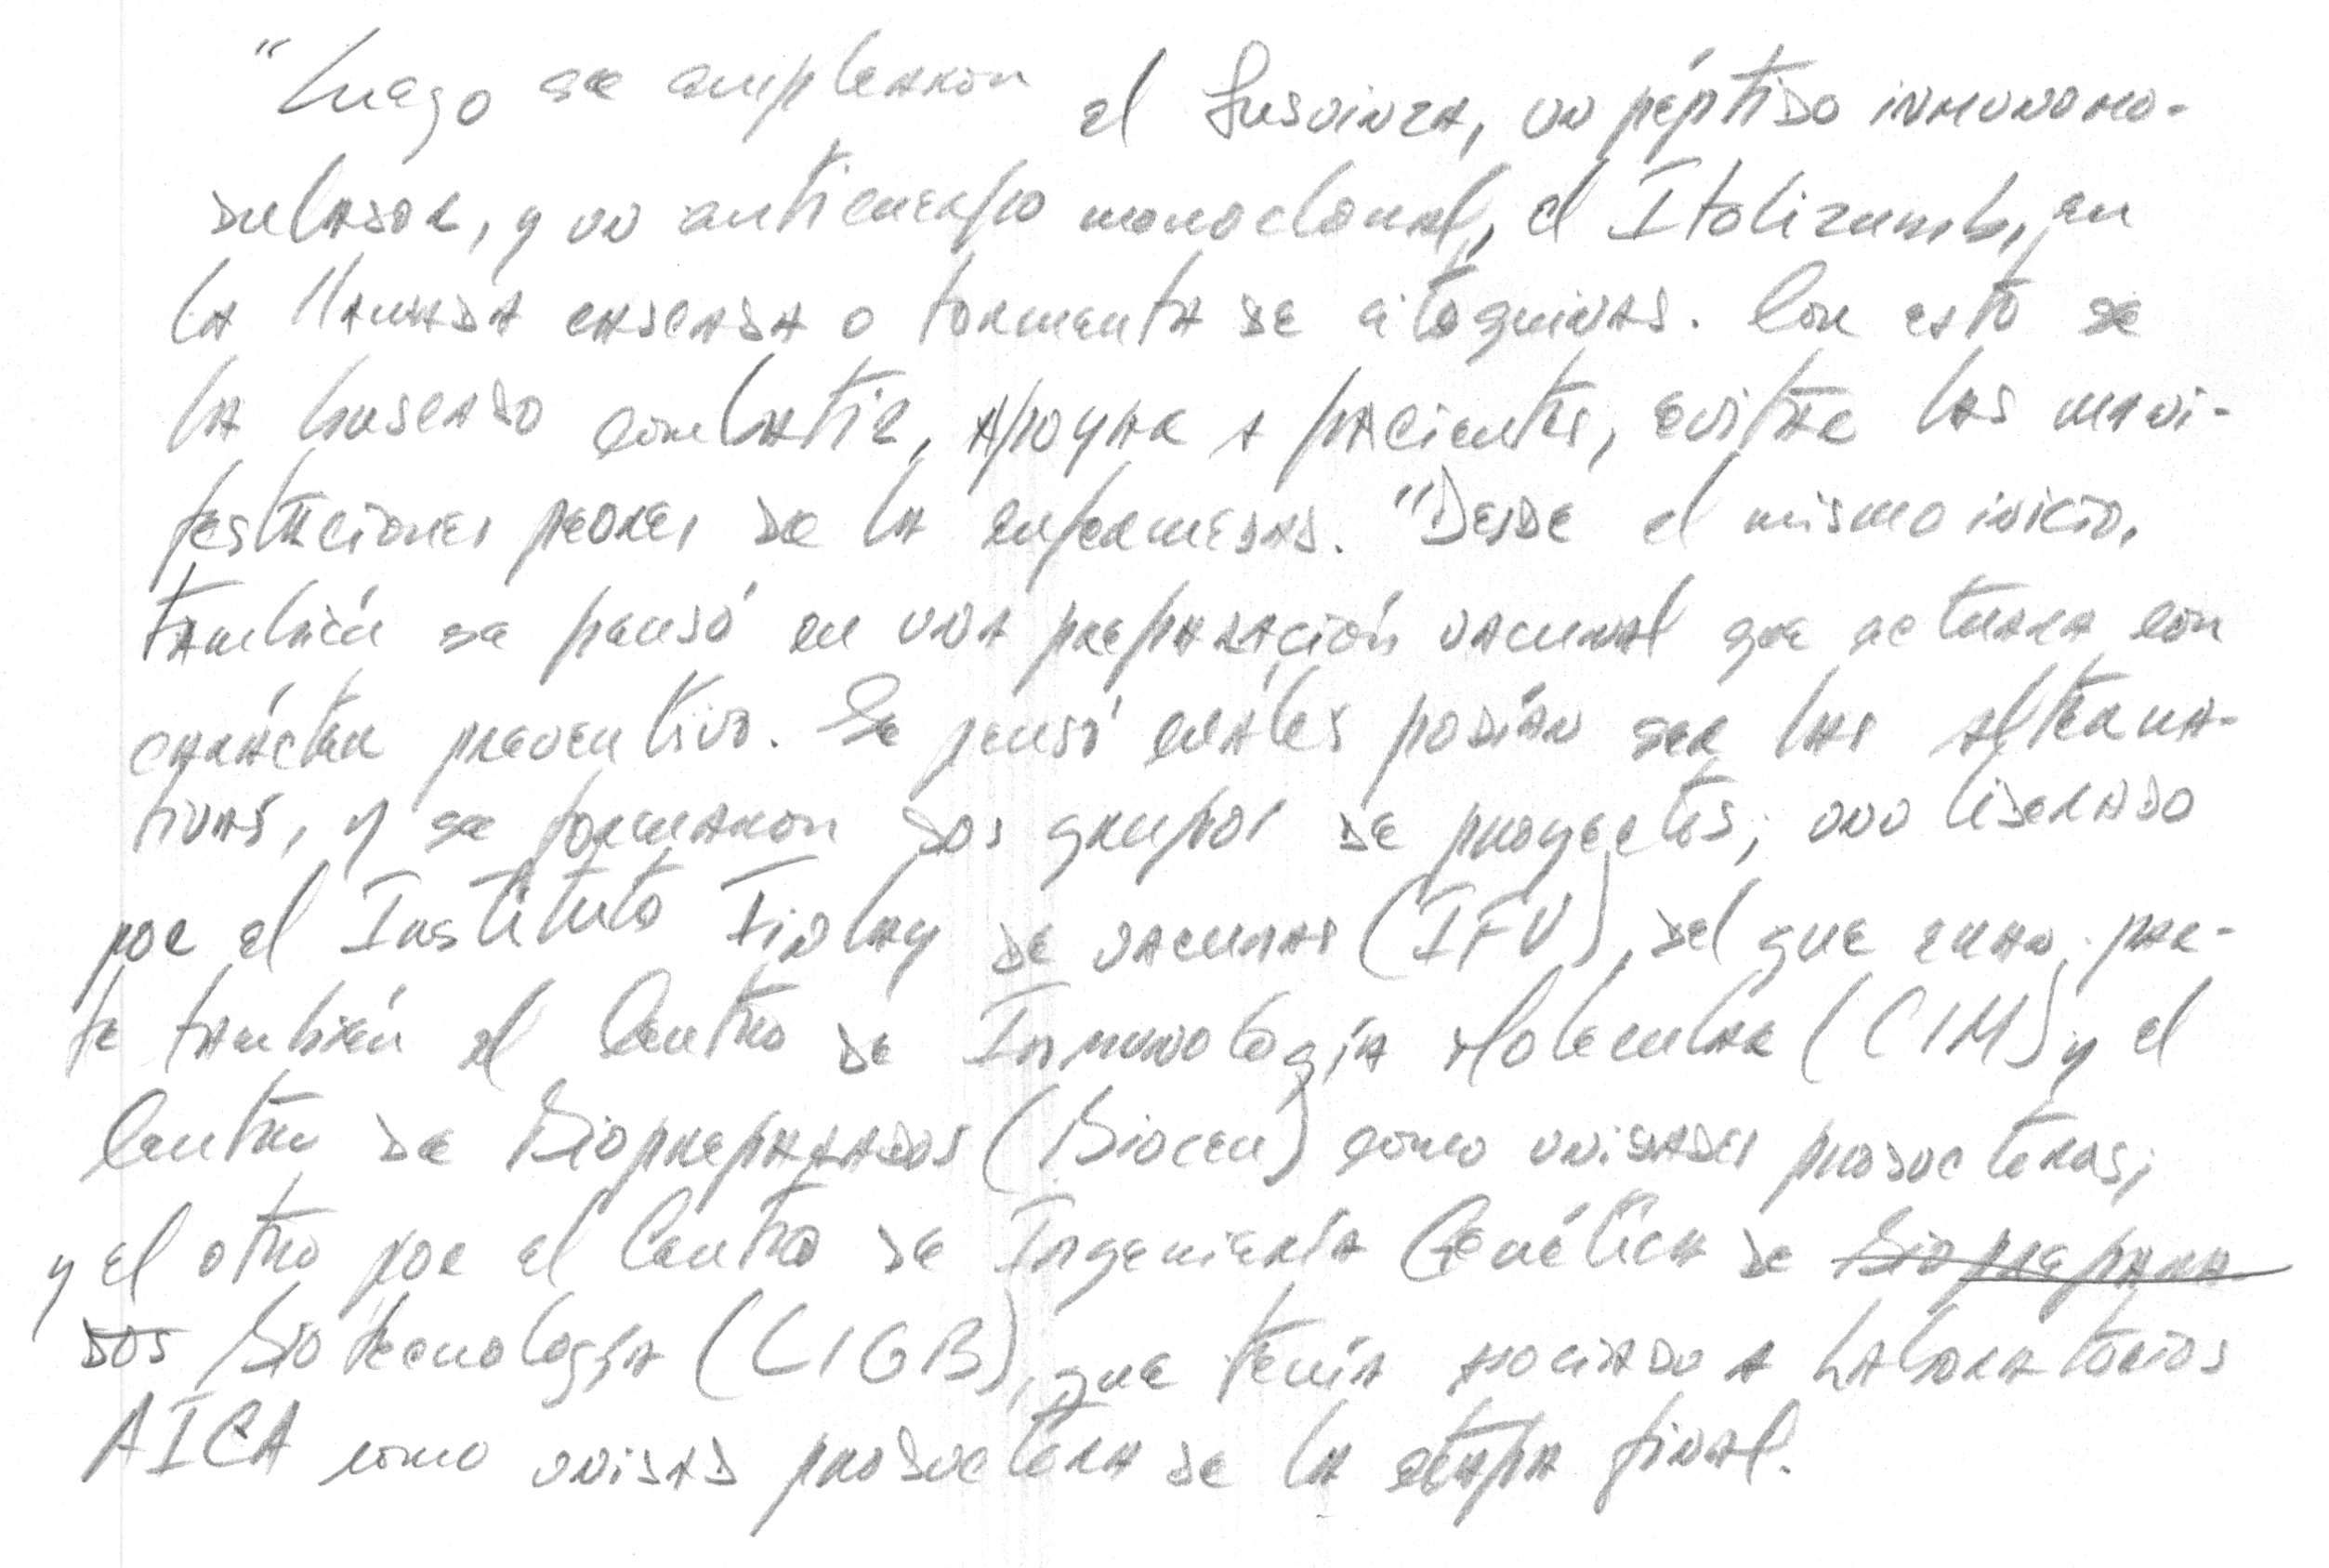 "Luego se emplearon el Jusvinza, un péptido inmunomo-
dulador, y un anticuerpo monoclonal, el Itolizumab, en
la llamada cascada o tormenta de citoquinas. Con esto se
ha buscado combatir, apoyar a pacientes, evitar las mani-
festaciones peores de la enfermedad. "Desde el mismo inicio,
también se pensó en una preparación vacunal que actuara con
carácter preventivo. Se pensó cuáles podían ser las alterna-
tivas, y se formaron dos grupos de proyectos; uno liderado
por el Instituto Finlay de vacunas (IFV), del que eran par-
te también el Centro de Inmunología Molecular (CIM) y el
Centro de Biopreparados (Biocen) como unidades productoras;
y el otro por el Centro de Ingeniería Genética de Bioprepara
dos Biotecnología (CIGB), que tenía asociado a Laboratorios
AICA como unidad productora de la etapa final.